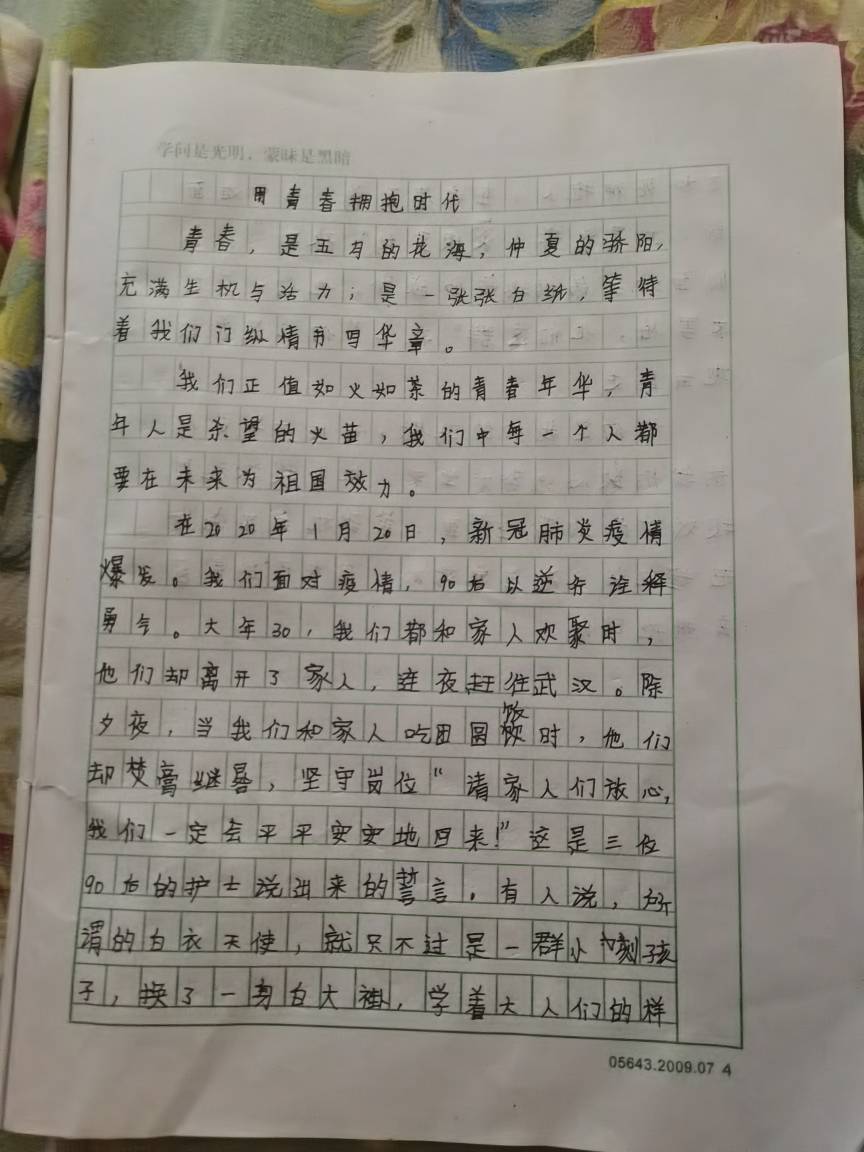 学问是光明，蒙昧是黑暗
用青春拥抱时代
青春，是五月的花海，仲夏的骄阳，
充满生机与活力；是一张张白纸，等待
着我们门纵情书写华章。
我们正值如火如荼的青春年华，青
年人是希望的火苗，我们中每一个人都
要在未来为祖国效力。
在2020年1月20日，新冠肺炎疫情
爆发。我们面对疫情，90后以逆行诠释
勇气。大年30，我们都和家人欢聚时，
他们却离开了家人，连夜赶往武汉。除
夕夜，当我们和家人吃团圆饭时，他们
却焚膏继晷，坚守岗位“请家人们放心，
我们一定会平平安安地回来！”这是三位
90后的护士说出来的誓言。有人说，所
谓的白衣天使，就只不过是一群小孩
子，换了一身白大褂，学着大人们的样
05643.2009.07 4